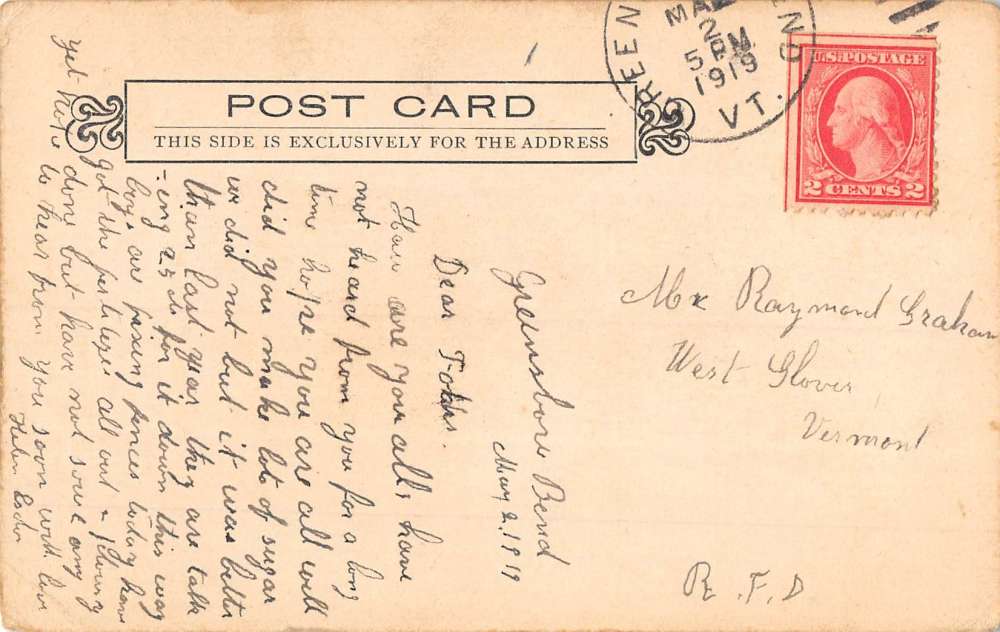 POST CARD
THIS SIDE IS EXCLUSIVELY FOR THE ADDRESS
GREEN
MA
2
5 PM
1919
VT.
U.S. POSTAGE
2 CENTS 2
Greensboro Bend
May 2. 1919
Dear Folks.
How are you all, have
not heard from you for a long
time hope you are all well
did you make lot of sugar
we did not but it was better
than last year they are talk
-ing 25 cts for it down this way
boys are fixing fences today have
got the fertilizer all out &
don but have not sowe any
yet hope to hear from you soon with love
Helen
Mr Raymond Graham
West Glover
Vermont
R. F. D